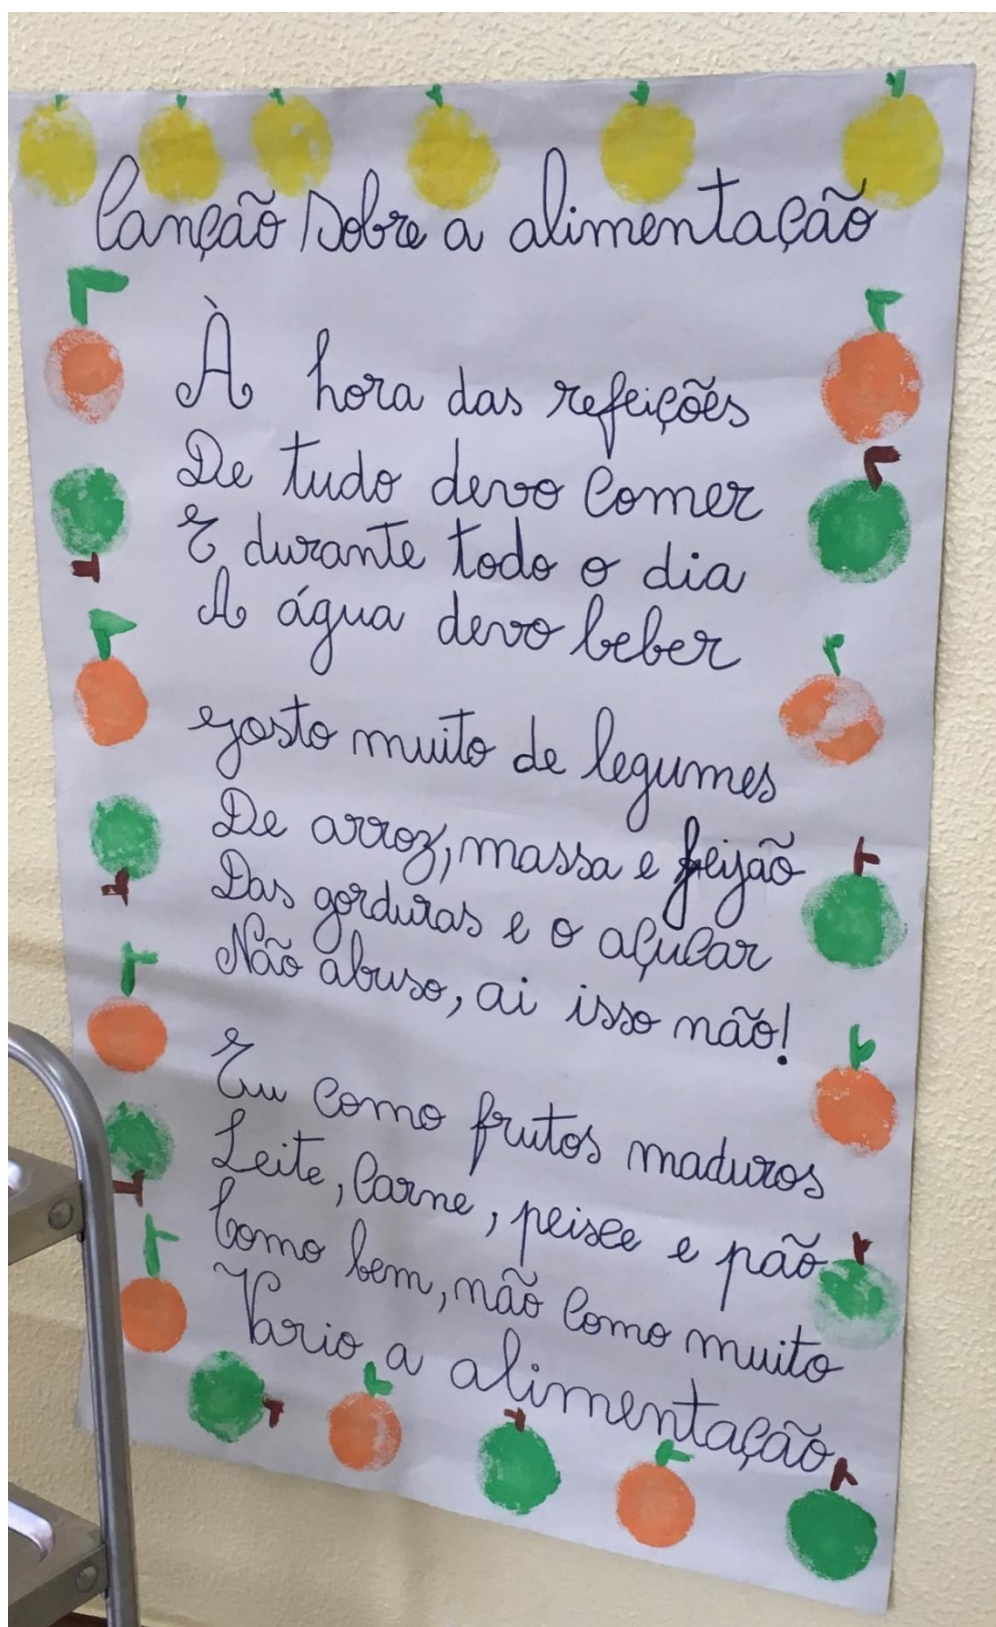 Canção Sobre a alimentação
À hora das refeições
De tudo devo comer
E durante todo o dia
A água devo beber
Gosto muito de legumes
De arroz, massa e feijão
Das gorduras e o açúcar
Não abuso, ai isso não!
Eu como frutos maduros
Leite, carne, peixe e pão
Como bem, não como muito
Vario a alimentação